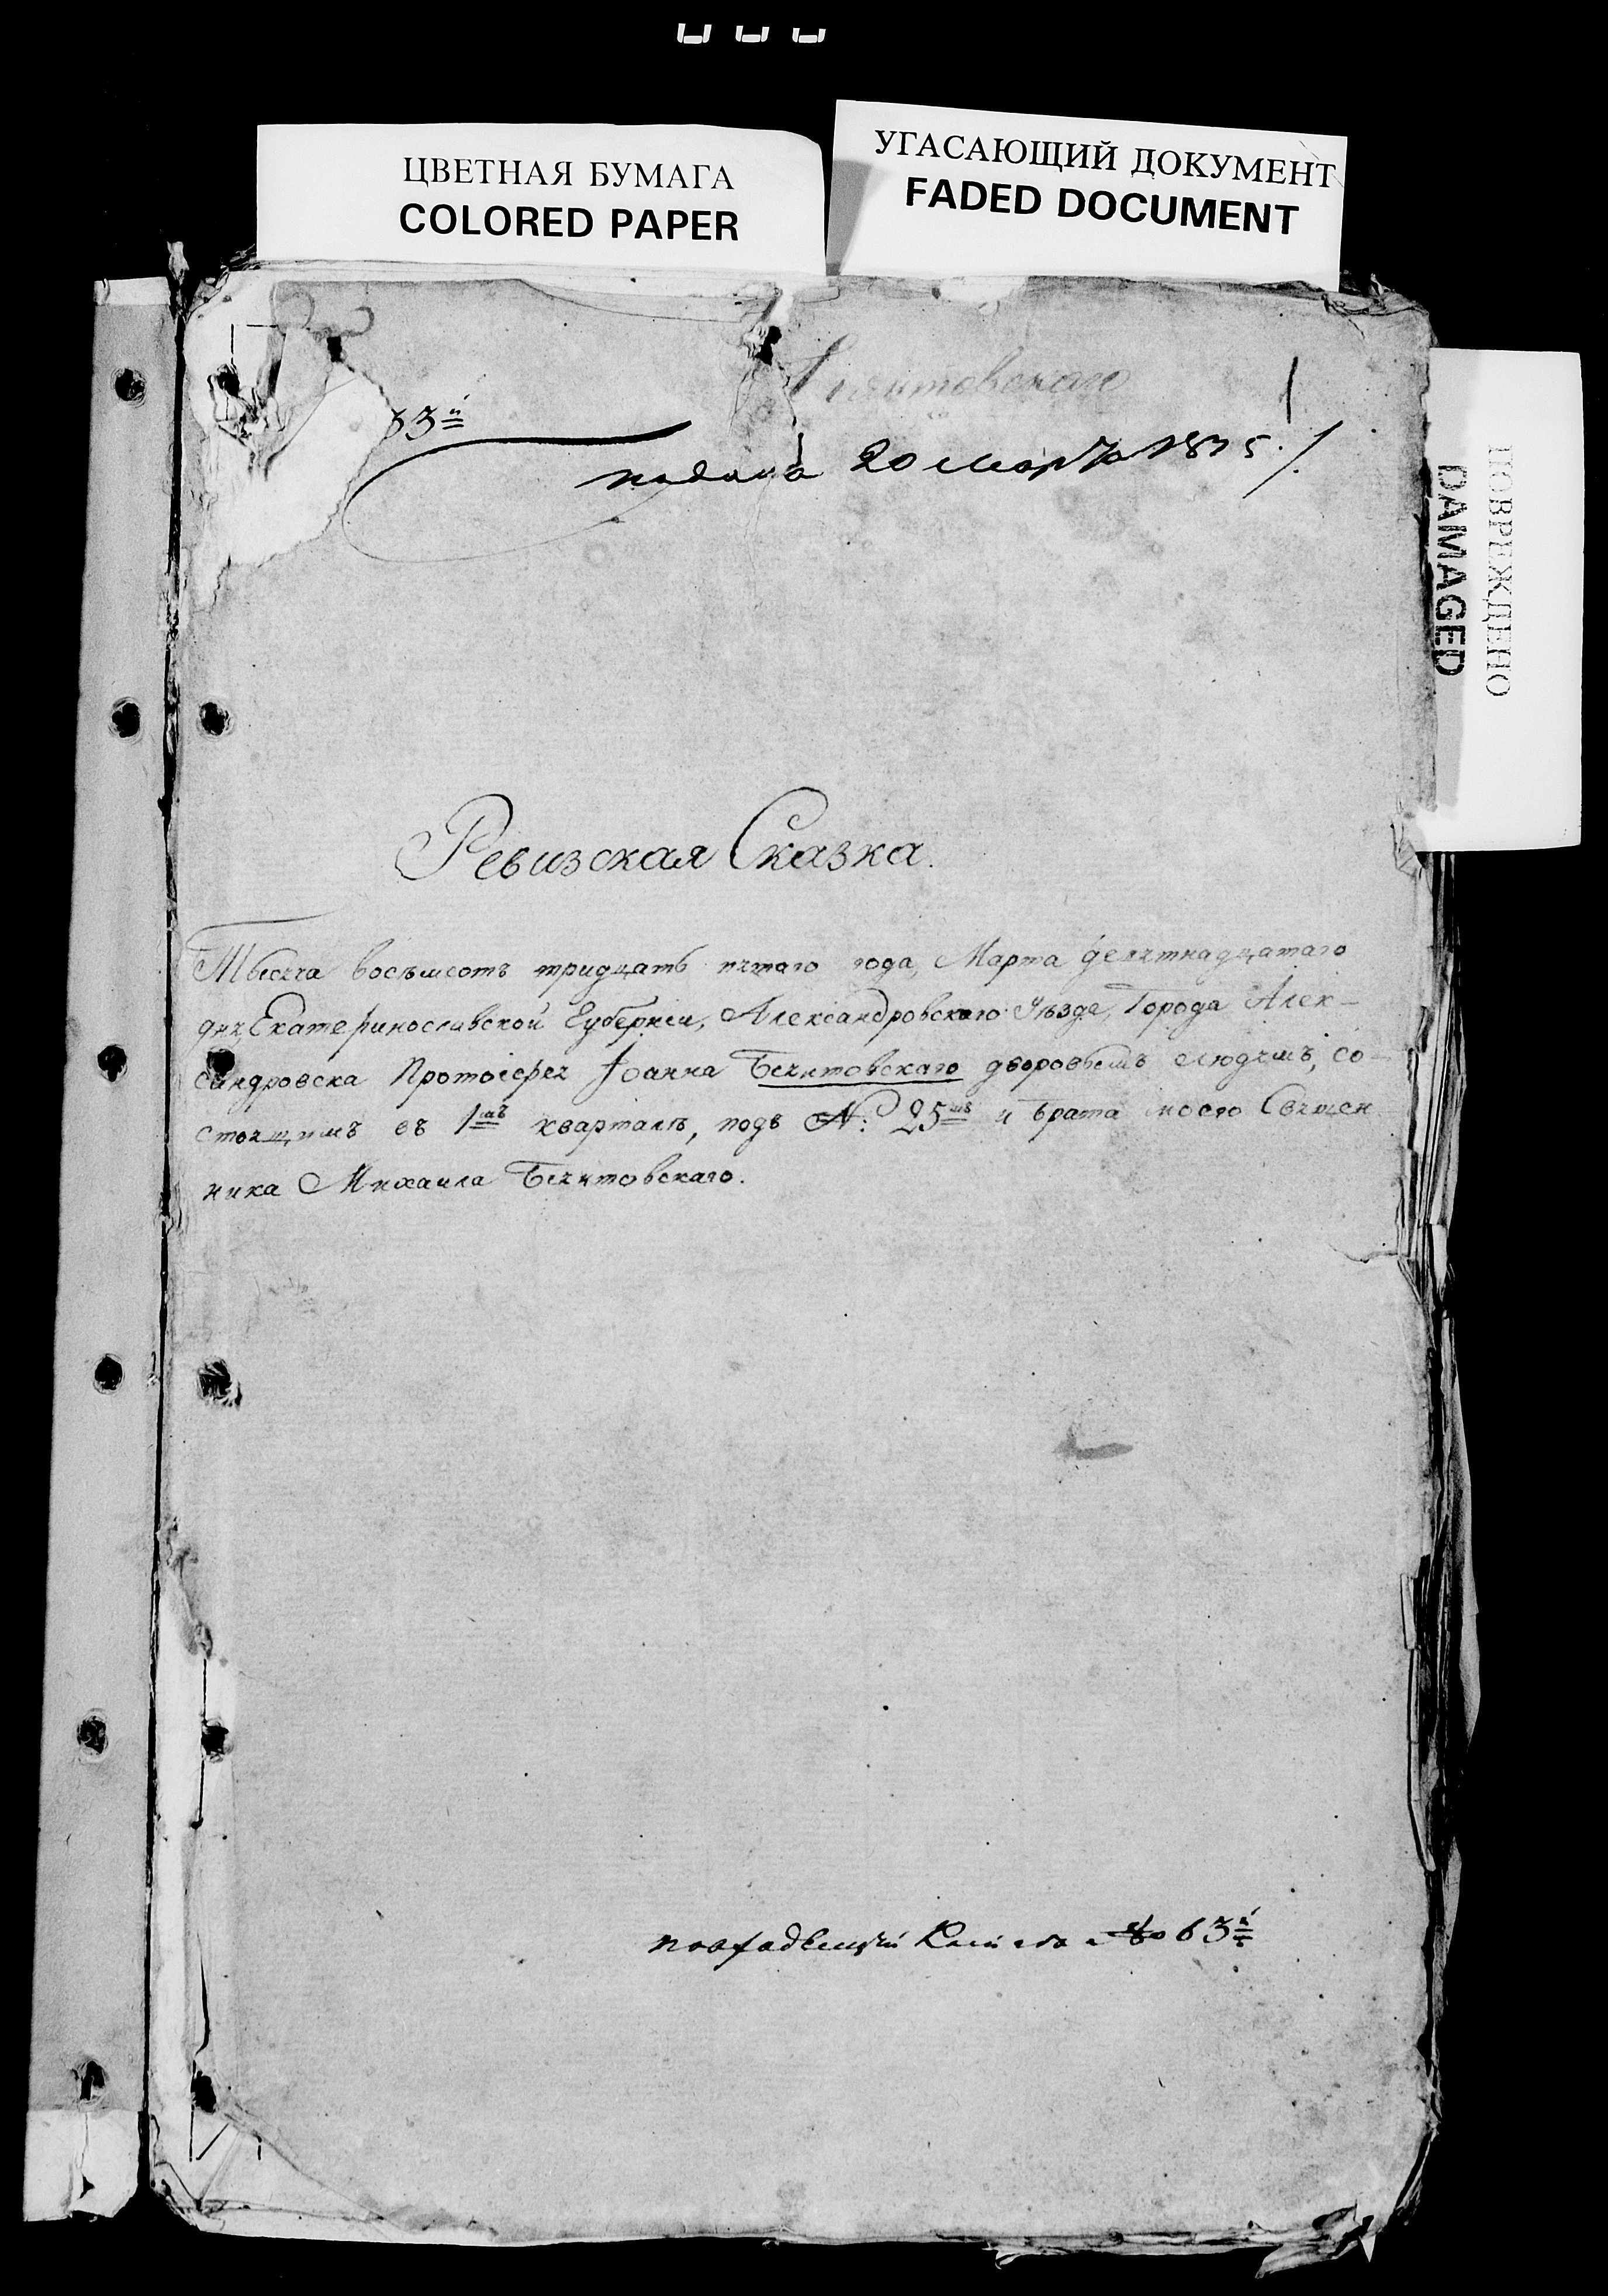 ЦВЕТНАЯ БУМАГА
COLORED PAPER
УГАСАЮЩИЙ ДОКУМЕНТ
FADED DOCUMENT
ПОВРЕЖДЕНО
DAMAGED
63й
подана 20 марта 1835.
Ревизская Сказка.
Тысяча восемсотъ тридцать пятаго года, Марта девятнадцатаго
дня, Екатеринославской Губерніи, Александровскаго Уѣзда, Города Алек-
сандровска Протоіерея Іоанна дворовымъ людямъ, со-
стоящимъ въ 1мъ кварталѣ, подъ №: 25мъ и брата моего Священ
ника Михаила
по 63й